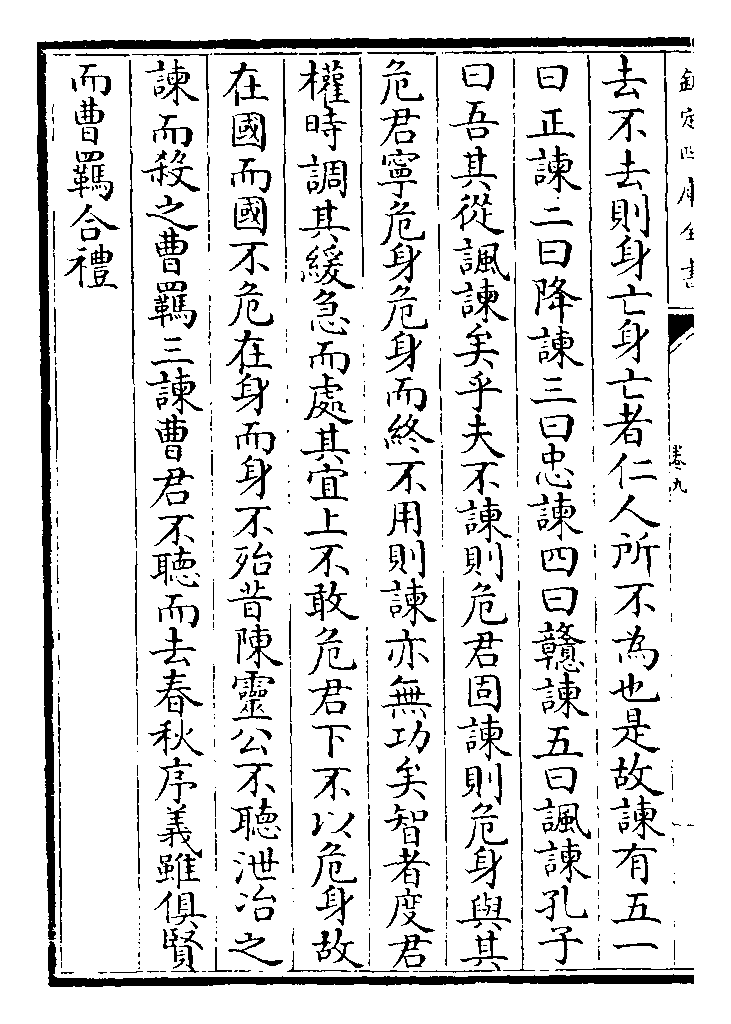 欽定四庫全書
卷九
去不去則身亡身亡者仁人所不為也是故諫有五一
曰正諫二曰降諫三曰忠諫四曰戇諫五曰諷諫孔子
曰吾其從諷諫矣乎夫不諫則危君固諫則危身與其
危君寧危身危身而終不用則諫亦無功矣智者度君
權時調其緩急而處其宜上不敢危君下不以危身故
在國而國不危在身而身不殆昔陳靈公不聽泄冶之
諫而殺之曹羈三諫曹君不聽而去春秋序義雖俱賢
而曹羈合禮